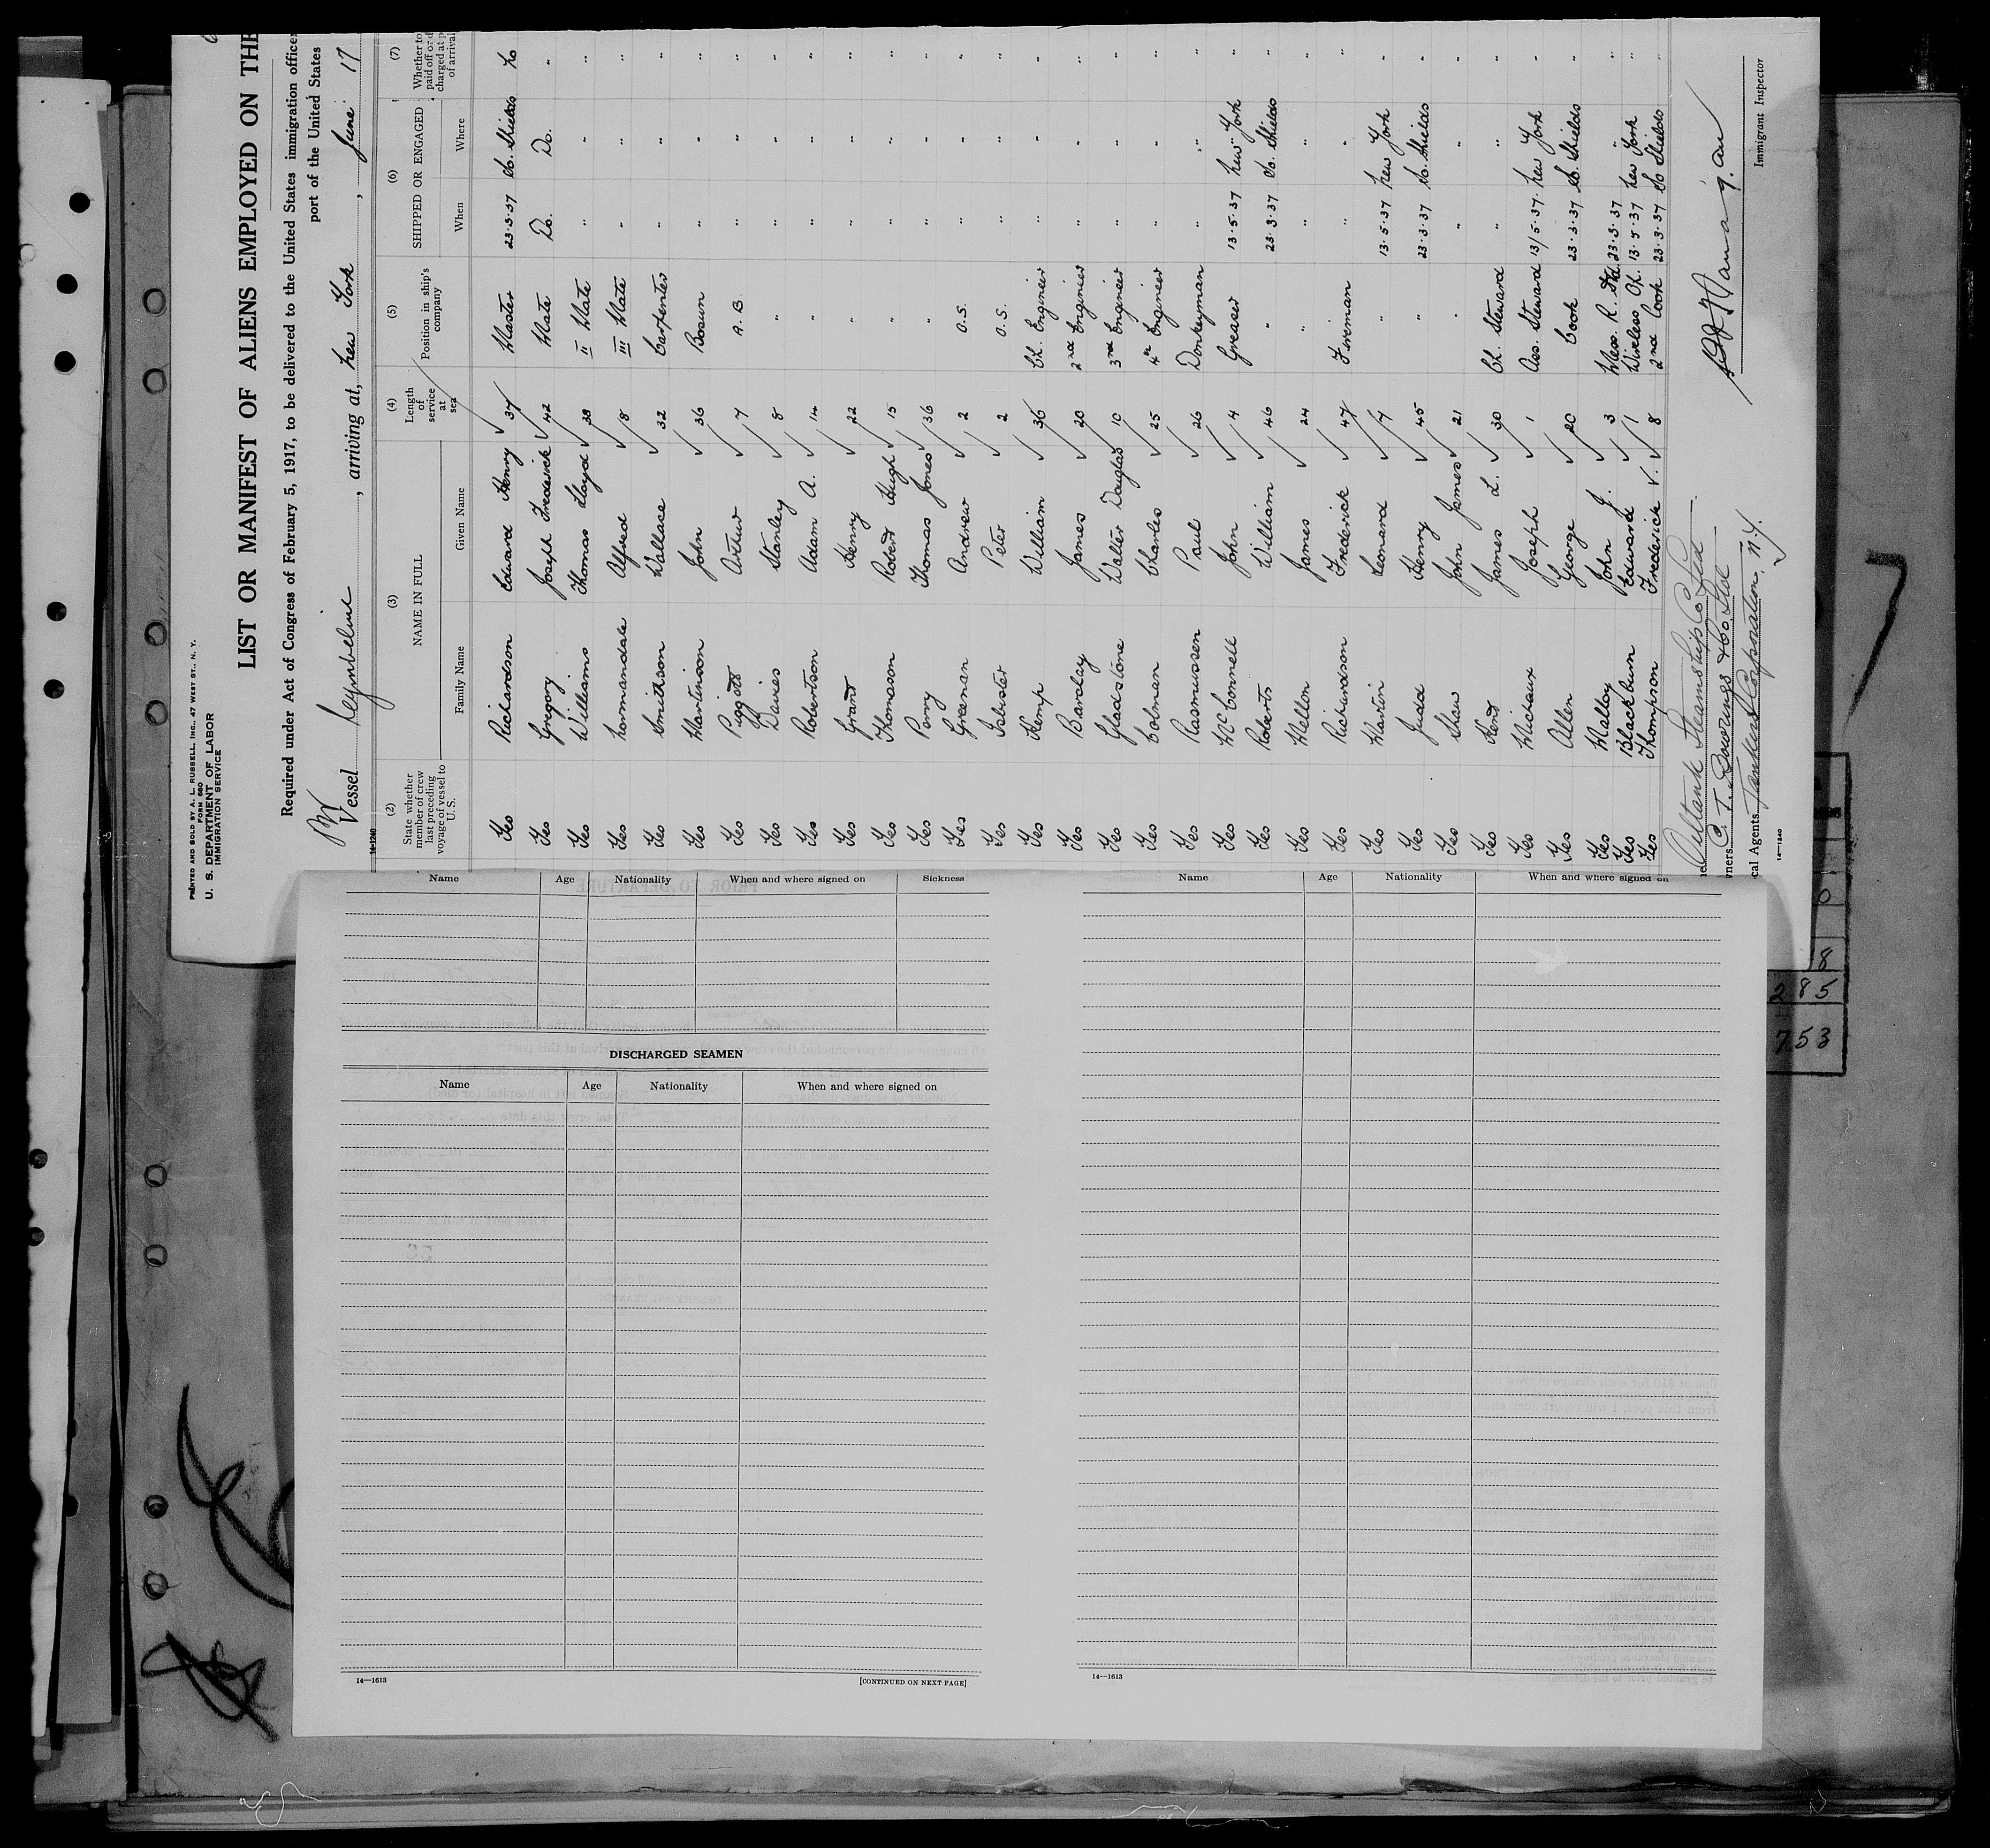 PRINTED AND SOLD BY A. L. RUSSELL, INC., 47 WEST ST., N. Y.
FORM 680
U. S. DEPARTMENT OF LABOR
IMMIGRATION SERVICE
LIST OR MANIFEST OF ALIENS EMPLOYED ON THE
Required under Act of Congress of February 5, 1917, to be delivered to the United States immigration officer
port of the United States
Vessel Cymbeline, arriving at, New York, June 17
14-1240
(2) (3) (4) (5) (6) (7)
State whether member of crew last preceding voyage of vessel to U. S. NAME IN FULL Length of service at sea Position in ship's company SHIPPED OR ENGAGED Whether to paid off or d charged at p of arrival
Family Name Given Name When Where
Yes Richardson Edward Henry 37 Master 23.3.37 So. Shields No
Yes Gregory Joseph Frederick 42 Mate Do. Do. "
Yes Williams Thomas Lloyd 23 II Mate " " "
Yes Normandale Alfred 8 III Mate " " "
Yes Smithson Wallace 32 Carpenter " " "
Yes Martinson John 36 Bosun " " "
Yes Piggott Arthur 7 A. B " " "
Yes Davies Stanley 8 " " " "
Yes Robertson Adam A. 14 " " " "
Yes Grant Henry 22 " " " "
Yes Thomason Robert Hugh 15 " " " "
Yes Perry Thomas Jones 36 " " " "
Yes Greenan Andrew 2 O.S. " " "
Yes Isbister Peter 2 O.S. " " "
Yes Kemp William 36 Ch. Engineer " " "
Yes Barclay James 20 2nd Engineer " " "
Yes Gladstone Walter Douglas 10 3rd Engineer " " "
Yes Colman Charles 25 4th Engineer " " "
Yes Rasmussen Paul 26 Donkeyman " " "
Yes McConnell John 4 Greaser 13.5.37 New York "
Yes Roberts William 46 " 23.3.37 So. Shields "
Yes Mellon James 24 " " " "
Yes Richardson Frederick 47 Fireman " " "
Yes Martin Leonard 7 " 13.5.37 New York "
Yes Judd Henry 45 " 23.3.37 So. Shields "
Yes Shaw John James 21 " " " "
Yes Kent James L. 30 Ch. Steward " " "
Yes Michaux Joseph 1 Ass. Steward 13/5.37. New York "
Yes Allen George 20 Cook 23.3.37 So. Shields "
Yes Malby John J. 3 Mess. R. Std. 23.3.37 " "
Yes Blackburn Edward 1 Wireless Op. 13.5.37 New York "
Yes Thompson Frederick V. 8 2nd Cook 23.3.37 So Shields "
Steamship Co Ltd
wners C. T. Bowring & Co. Ltd
cal Agents Tankers Corporation, N.Y.
14-1240
Immigrant Inspector
7
0
8
285
753
Name Age Nationality When and where signed on Sickness
DISCHARGED SEAMEN
Name Age Nationality When and where signed on
14—1613
[CONTINUED ON NEXT PAGE]
Name Age Nationality When and where signed on
14—1613